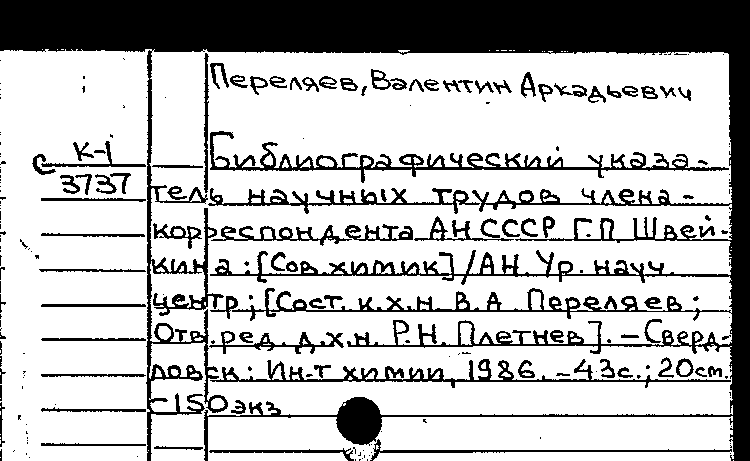 Переляев, Валентин Аркадьевич
К-1
3737
Библиографический указа-
тель научных трудов члена-
корреспондента АН СССР Г.П. Швей-
кина : [Сов. химик] / АН. Ур. науч.
центр ; [Сост. к.х.н. В.А Переляев ;
Отв. ред. д.х.н. Р.Н. Плетнев]. – Сверд-
ловск : Ин-т химии, 1986. – 43с. ; 20см.
– 150 экз